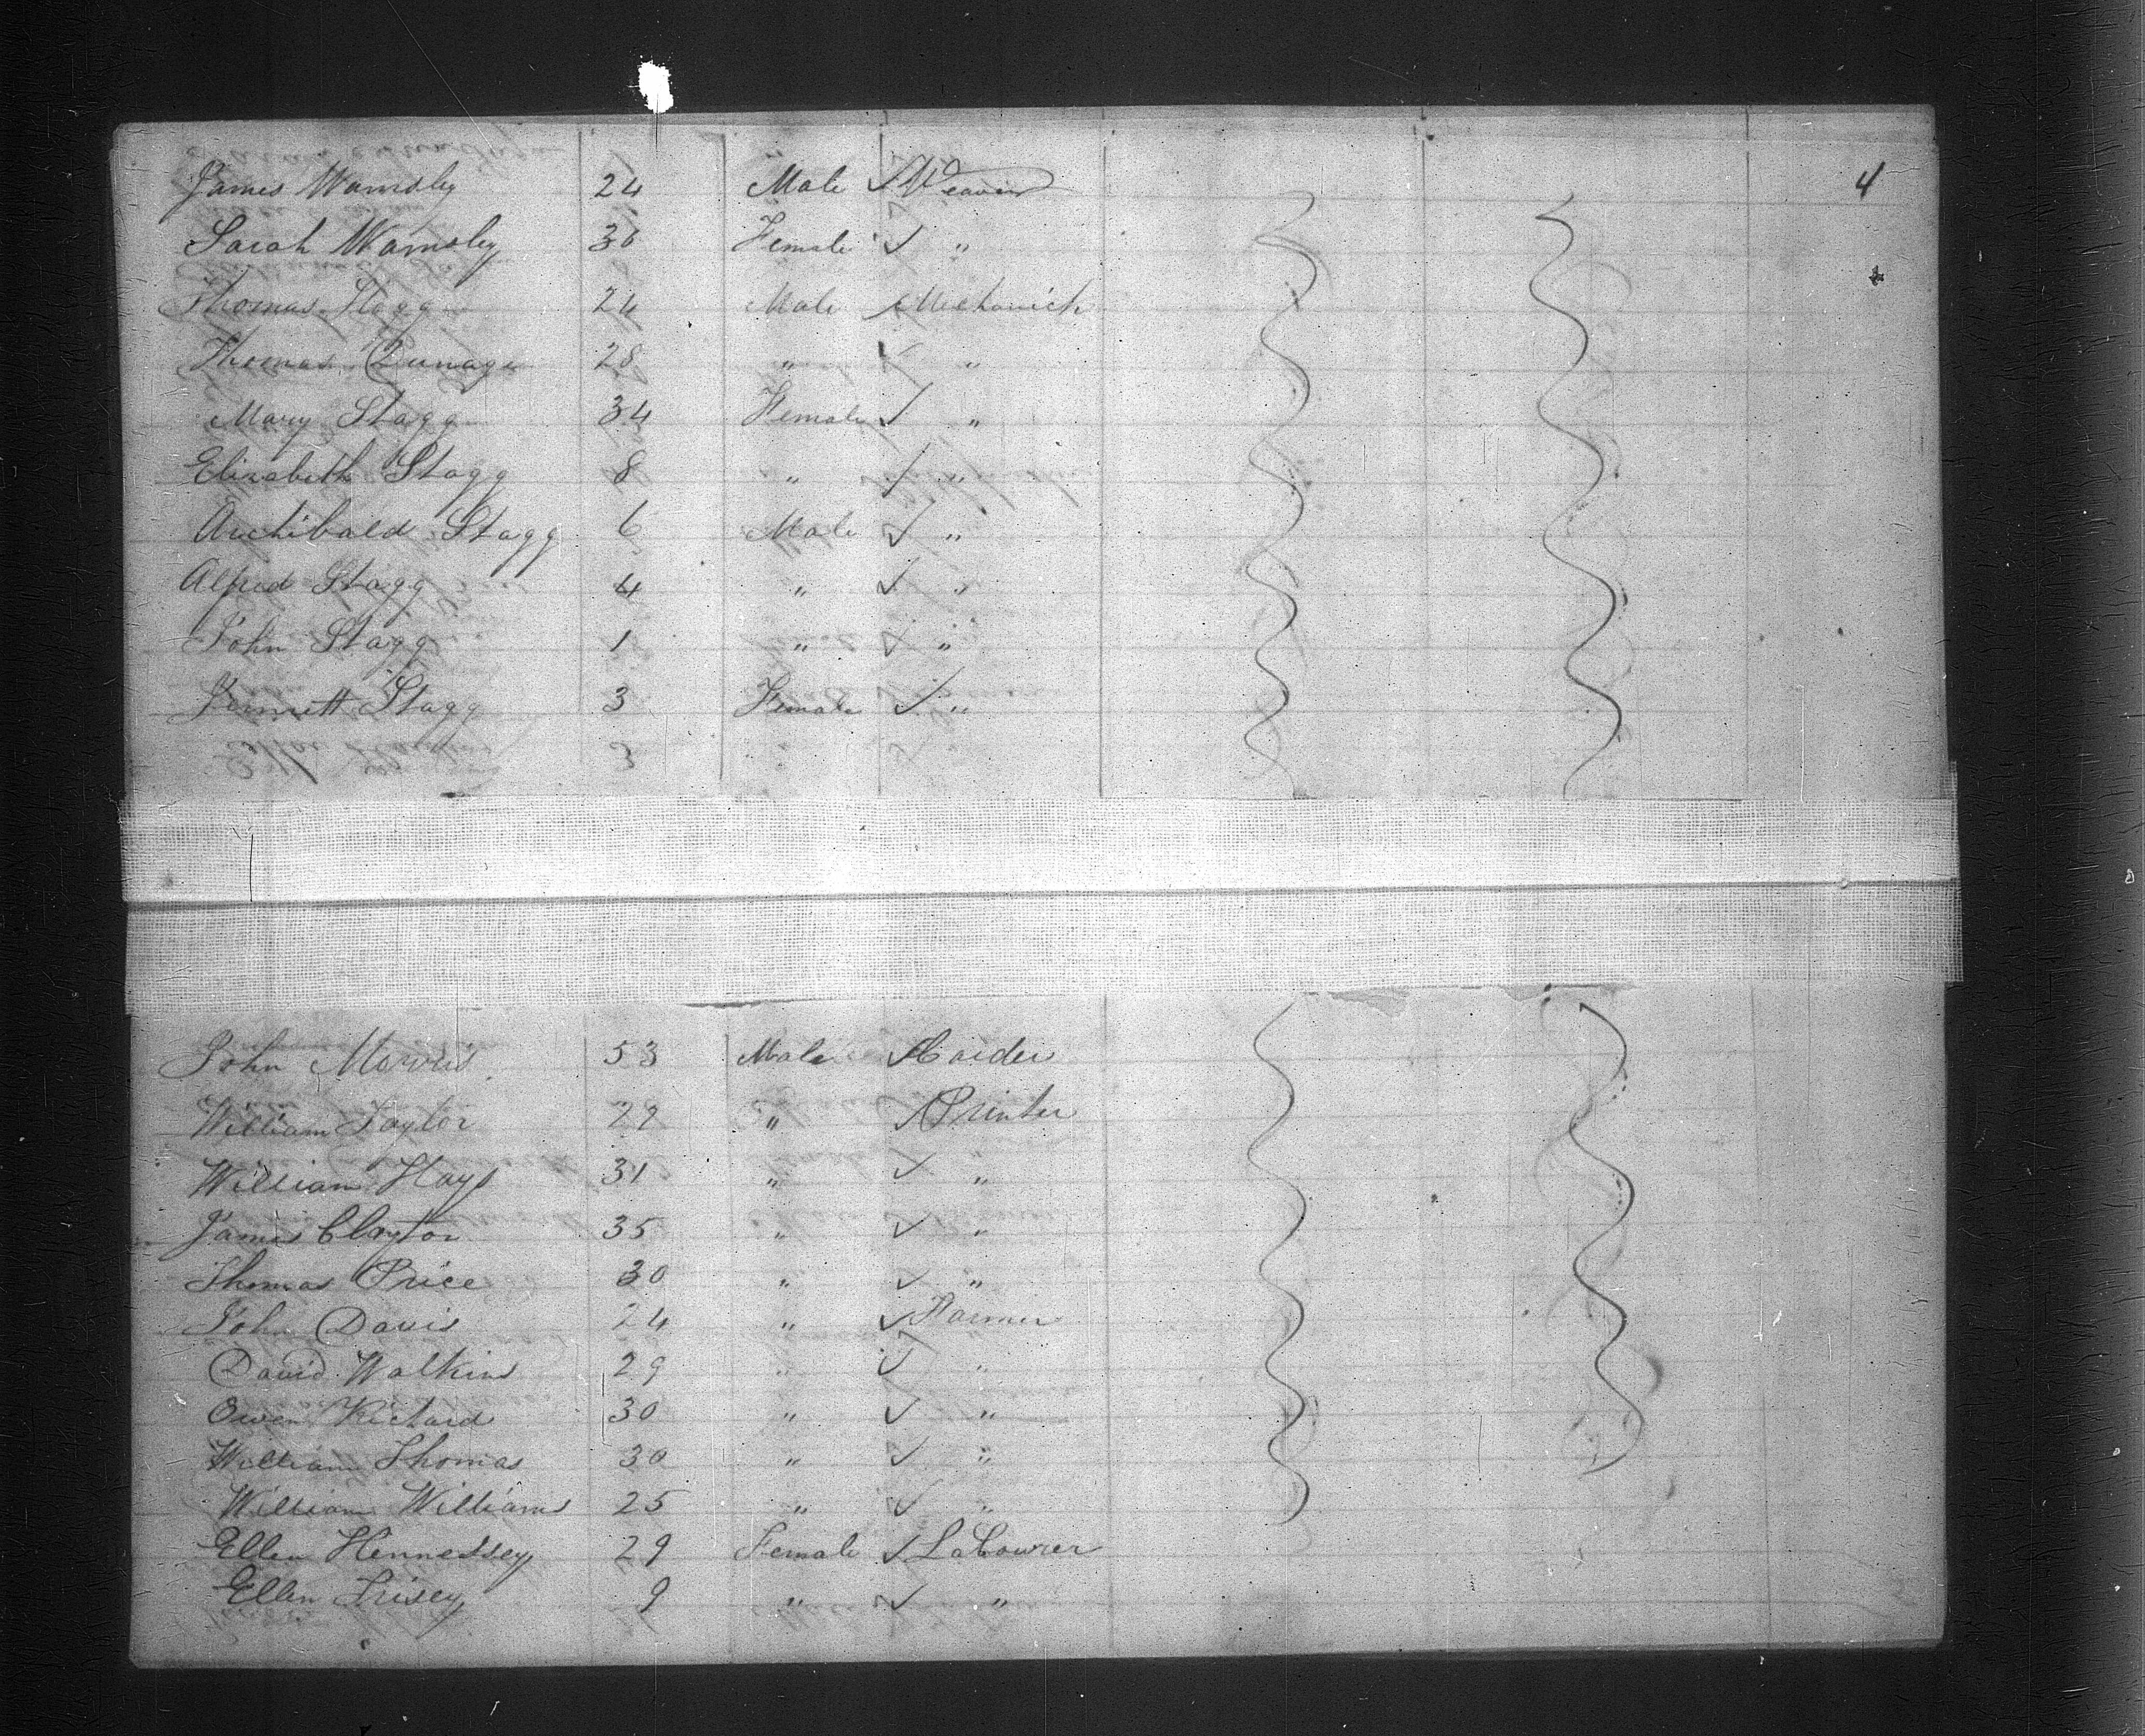 4
James Wamsley 24 Male ✓ Weaver
Sarah Wamsley 30 Female ✓ "
Thomas Stagg 24 Male ✓ Mechanich
Thomas 28 " ✓ "
Mary Stagg 34 Female ✓ "
Elizabeth Stagg 8 " ✓ "
Archibald Stagg 6 Male ✓ "
Alfred Stagg 4 " ✓ "
John Stagg 1 " ✓ "
Jennett Stagg 3 Female ✓ "
John Morris 53 Male ✓ Carder
William Taylor 29 " ✓ Printer
William Hays 31 " ✓ "
James Clayton 35 " ✓ "
Thomas Price 30 " ✓ "
John Davis 24 " ✓ Farmer
David Watkins 29 " ✓ "
Owen Richard 30 " ✓ "
William Thomas 30 " ✓ "
William Williams 25 " ✓ "
Ellen Hennessey 29 Female ✓ Labourer
Ellen 9 " ✓ "